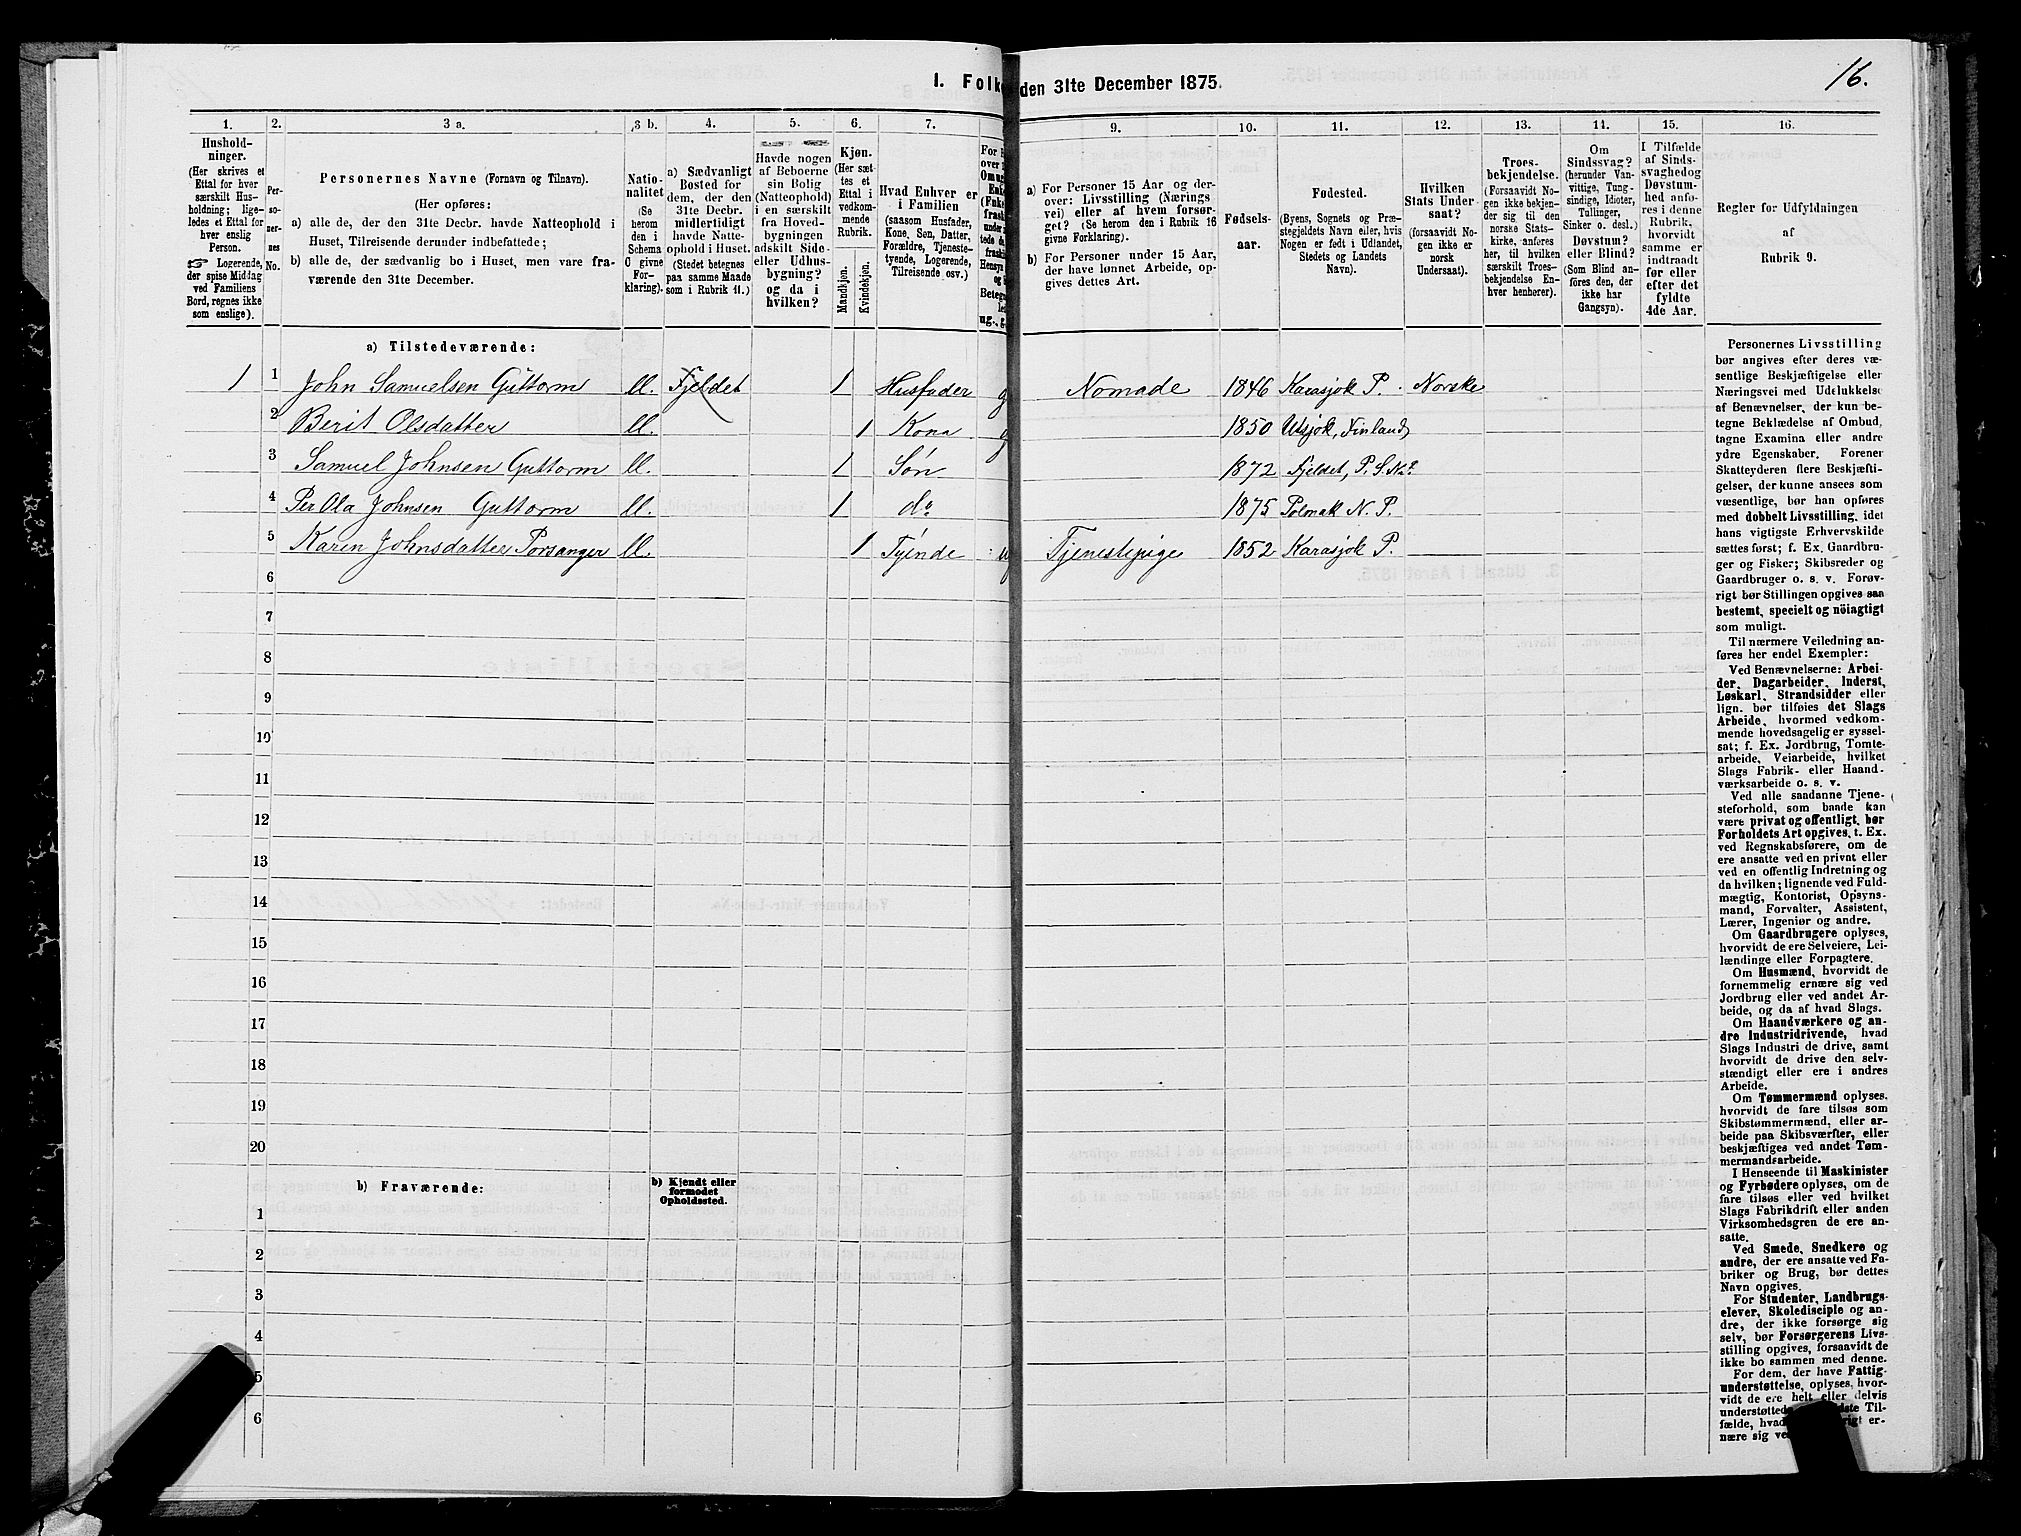 1. Folke
den 31te December 1875.
16.
1.
2.
3 a.
3 b.
4.
5.
6.
7.
9.
10.
11.
12.
13.
14.
15.
16.
Hushold-
ninger.
(Her skrives et
Ettal for hver
særskilt Hus-
holdning; lige-
ledes et Ettal for
hver enslig
Person.
☞ Logerende,
der spise Middag
ved Familiens
Bord, regnes ikke
som enslige).
Per-
so-
ner-
nes
No.
Personernes Navne (Fornavn og Tilnavn).
(Her opføres:
a) alle de, der den 31te Decbr. havde Natteophold i
Huset, Tilreisende derunder indbefattede;
b) alle de, der sædvanlig bo i Huset, men vare fra-
værende den 31te December.
Natio-
nalitet
(Se
herom
den i
Schema
C givne
For-
klaring).
a) Sædvanligt
Bosted for
dem, der den
31te Decbr.
midlertidigt
havde Natte-
ophold i Huset.
(Stedet betegnes
paa samme Maade
som i Rubrik 11.)
Havde nogen
af Beboerne
sin Bolig
(Natteophold)
i en særskilt
fra Hoved-
bygningen
adskilt Side-
eller Udhus-
bygning?
og da i
hvilken?
Kjøn.
(Her sæt-
tes et
Ettal i
vedkom-
mende
Rubrik.
Mandkjøn.
Kvindekjøn.
Hvad Enhver er
i Familien
(saasom Husfader,
Kone, Søn, Datter,
Forældre, Tjeneste-
tyende, Logerende,
Tilreisende osv.)
a) For Personer 15 Aar og der-
over: Livsstilling (Nærings
vei) eller af hvem forsør-
get? (Se herom den i Rubrik 16
givne Forklaring).
b) For Personer under 15 Aar,
der have lønnet Arbeide, op-
gives dettes Art.
Fødsels-
aar.
Fødested.
(Byens, Sognets og Præ-
stegjeldets Navn eller, hvis
Nogen er født i Udlandet,
Stedets og Landets
Navn).
Hvilken
Stats Under-
saat?
(forsaavidt No-
gen ikke er
norsk
Undersaat).
Troes-
bekjendelse.
(Forsaavidt No-
gen ikke bekjen-
der sig til den
norske Stats-
kirke, anføres
her, til hvilken
særskilt Troes-
bekjendelse En-
hver henhører).
Om
Sindssvag?
(herunder Van-
vittige, Tung-
sindige, Idioter,
Tullinger,
Sinker o. desl.)
Døvstum?
eller Blind?
(Som Blind an-
føres den, der
ikke har
Gangsyn).
I Tilfælde
af Sinds-
svaghed og
Døvstum-
hed anfø-
res i denne
Rubrik,
hvorvidt
samme er
indtraadt
før eller
efter det
fyldte
4de Aar.
Regler for Udfyldningen
af
Rubrik 9.
a) Tilstedeværende:
1 1 John Samuelsen Guttorm ll. Fjeldet 1 Husfader g Nomade 1846 Karasjok P. Norske
2 Berit Olsdatter ll. 1 Kona g 1850 Utsjok, Finland
3 Samuel Johnsen Guttorm ll. 1 Søn 1872 Fjeldet, P. S.
4 Per Ola Johnsen Guttorm ll. 1 do 1875 Polmak N. P.
5 Karen Johnsdatter Porsanger ll. 1 Tyende Tjenestepige 1852 Karasjok P.
6
7
8
9
10
11
12
13
14
15
16
17
18
19
20
b) Fraværende:
b) Kjendt eller
formodet
Opholdssted.
1
2
3
4
5
6
Personernes Livsstilling
bør angives efter deres væ-
sentlige Beskjæftigelse eller
Næringsvei med Udelukkelse
af Benævnelser, der kun be-
tegne Beklædelse af Ombud,
tagne Examina eller andre
ydre Egenskaber. Forener
Skatteyderen flere Beskjæfti-
gelser, der kunne ansees som
væsentlige, bør han opføres
med dobbelt Livsstilling, idet
hans vigtigste Erhvervskilde
sættes først; f. Ex. Gaardbru-
ger og Fisker; Skibsreder og
Gaardbruger o. s. v. Forøv-
rigt bør Stillingen opgives saa
bestemt, specielt og nöiagtigt
som muligt.
Til nærmere Veiledning an-
føres her endel Exempler:
Ved Benævnelserne: Arbei-
der, Dagarbeider, Inderst,
Løskarl, Strandsidder eller
lign. bør tilføies det Slags
Arbeide, hvormed vedkom-
mende hovedsagelig er syssel-
sat; f. Ex. Jordbrug, Tomte-
arbeide, Veiarbeide, hvilket
Slags Fabrik- eller Haand-
værksarbeide o. s. v.
Ved alle saadanne Tjene-
steforhold, som baade kan
være privat og offentligt, bør
Forholdets Art opgives, t. Ex.
ved Regnskabsførere, om de
ere ansatte ved en privat eller
ved en offentlig Indretning og
da hvilken; lignende ved Fuld-
mægtig, Kontorist, Opsyns-
mand, Forvalter, Assistent,
Lærer, Ingeniør og andre.
Om Gaardbrugere oplyses,
hvorvidt de ere Selveiere, Lei-
lændinge eller Forpagtere.
Om Husmænd, hvorvidt de
fornemmelig ernære sig ved
Jordbrug eller ved andet Ar-
beide, og da af hvad Slags.
Om Haandværkere og an-
dre Industridrivende, hvad
Slags Industri de drive, samt
hvorvidt de drive den selv-
stændigt eller ere i andres
Arbeide.
Om Tømmermænd oplyses,
hvorvidt de fare tilsøs som
Skibstømmermænd, eller ar-
beide paa Skibsværfter, eller
beskjæftiges ved andet Tøm-
mermandsarbeide.
I Henseende til Maskinister
og Fyrbødere oplyses, om de
fare tilsøs eller ved hvilket
Slags Fabrikdrift eller anden
Virksomhedsgren de ere an-
satte.
Ved Smede, Snedkere og
andre, der ere ansatte ved Fa-
briker og Brug, bør dettes
Navn opgives.
For Studenter, Landbrugs-
elever, Skoledisciple og an-
dre, der ikke forsørge sig
selv, bør Forsørgerens Livs-
stilling opgives, forsaavidt de
ikke bo sammen med denne.
For dem, der have Fattig-
understøttelse, oplyses, hvor-
vidt de ere helt eller delvis